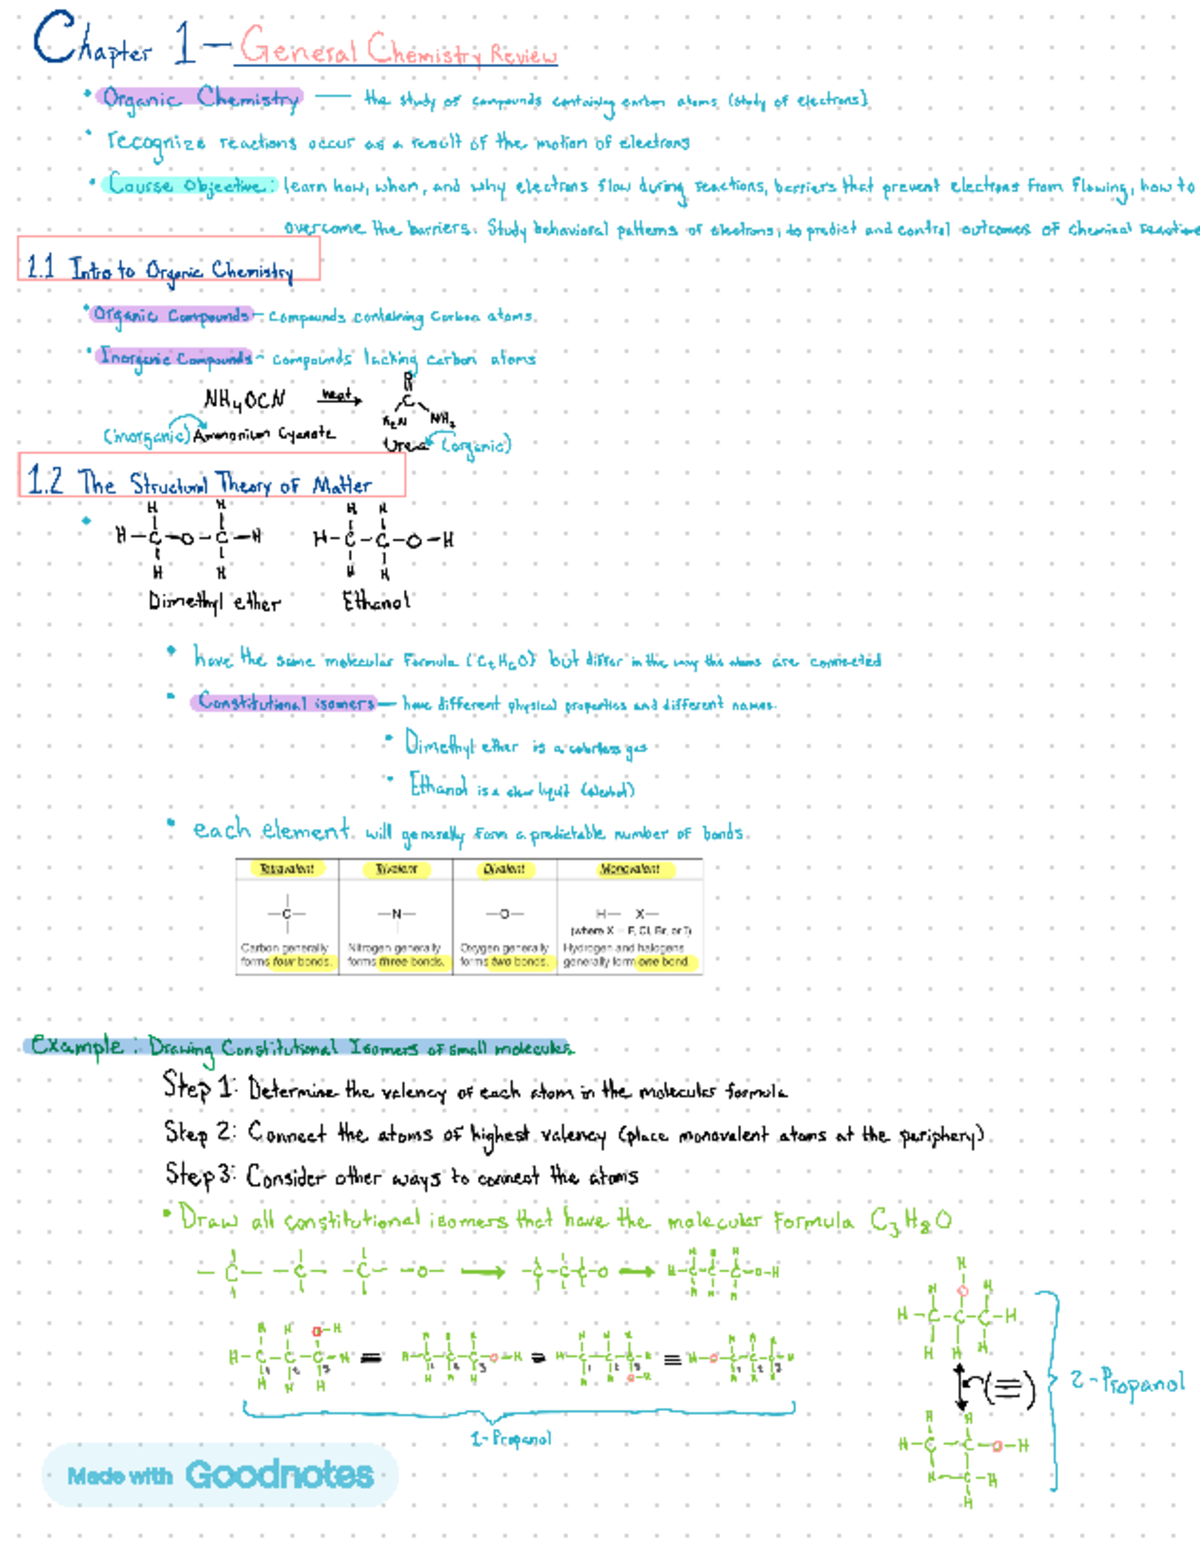 Chapter 1 — General Chemistry Review
• Organic Chemistry — the study of compounds containing carbon atoms (study of electrons)
• recognize reactions occur as a result of the motion of electrons
• Course Objective: learn how, when, and why electrons flow during reactions, barriers that prevent electrons from flowing, how to
overcome the barriers. Study behavioral patterns of electrons; to predict and control outcomes of chemical reactions
1.1 Intro to Organic Chemistry
• Organic Compounds - compounds containing carbon atoms
• Inorganic Compounds - compounds lacking carbon atoms
NH4OCN heat → O C H2N NH2
(inorganic) Ammonium Cyanate Urea (organic)
1.2 The Structural Theory of Matter
H H H H
• H-C-O-C-H H-C-C-O-H
H H H H
Dimethyl ether Ethanol
• have the same molecular formula (C2H6O) but differ in the way the atoms are connected
• Constitutional isomers — have different physical properties and different names.
• Dimethyl ether is a colorless gas
• Ethanol is a clear liquid (alcohol)
• each element will generally form a predictable number of bonds.
Tetravalent Trivalent Divalent Monovalent
—C— —N— —O— H— X—
(where X = F, Cl, Br, or I)
Carbon generally Nitrogen generally Oxygen generally Hydrogen and halogens
forms four bonds. forms three bonds. forms two bonds. generally form one bond.
Example: Drawing Constitutional Isomers of small molecules
Step 1: Determine the valency of each atom in the molecular formula
Step 2: Connect the atoms of highest valency (place monovalent atoms at the periphery)
Step 3: Consider other ways to connect the atoms
• Draw all constitutional isomers that have the molecular formula C3H8O
—C— —C— —C— —O— → -C-C-C-O → H-C-C-C-O-H
1-Propanol
(≡)
2-Propanol
Made with Goodnotes